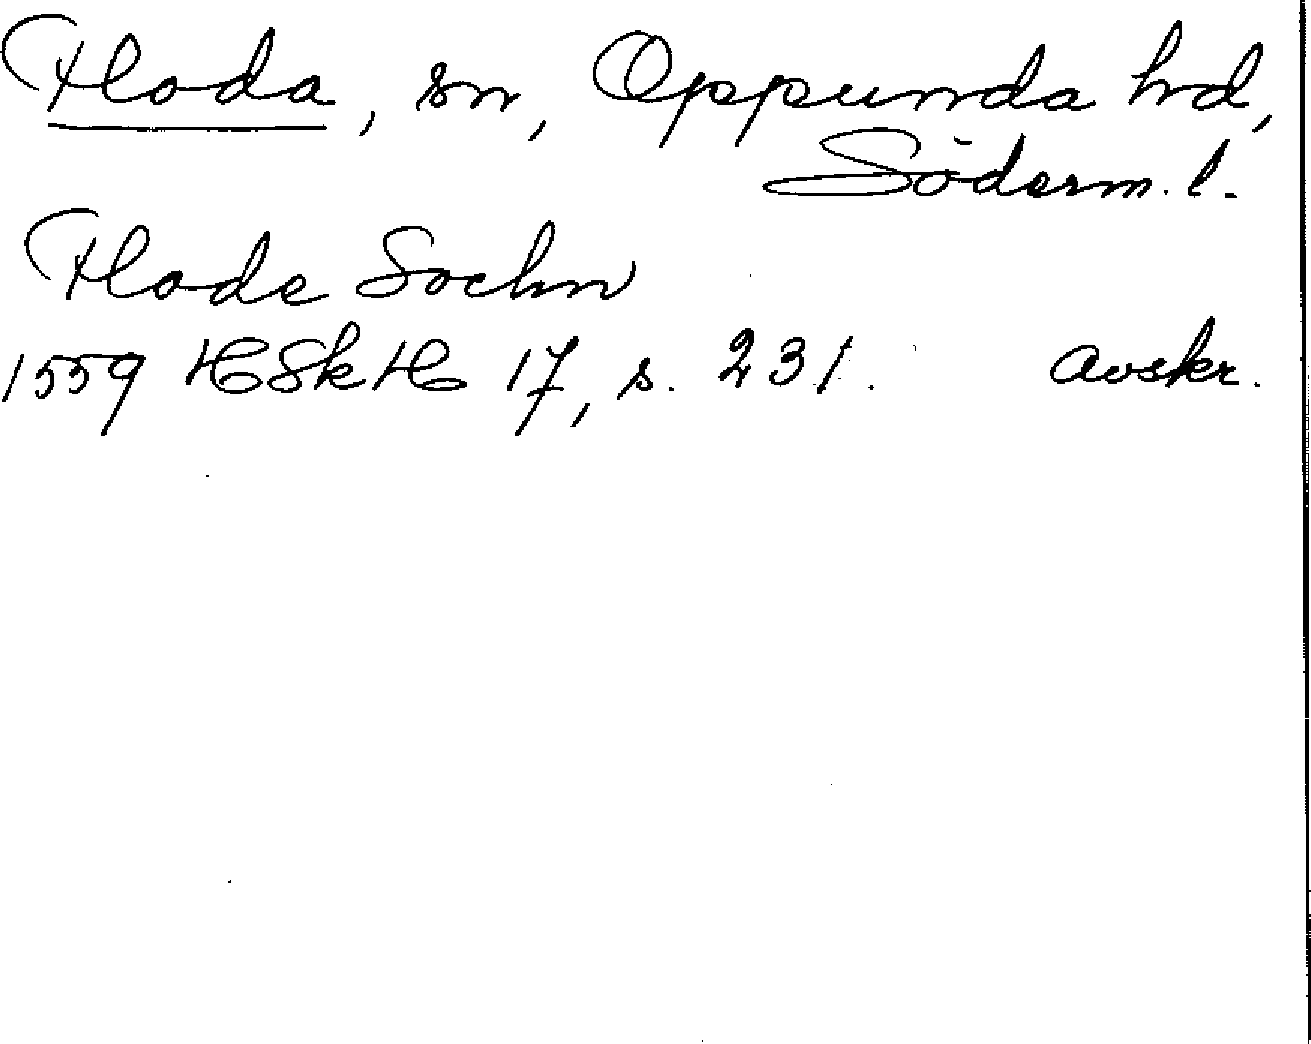 Floda, sn, Oppunda hd,
Söderm. l.
Flode Sochn
1559 HSkH 17, s. 231. Avskr.